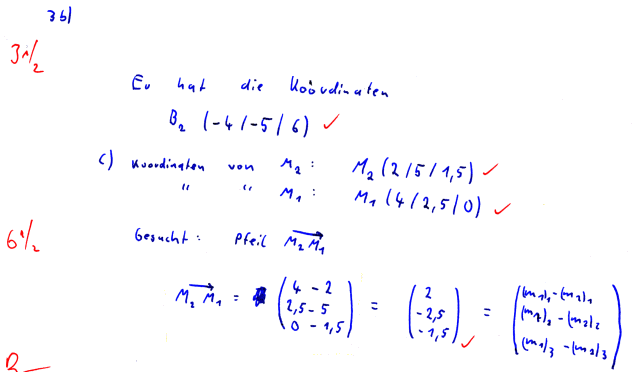 3b)
3 1/2
Er hat die Koordinaten
B₂ (-4/-5/6) ✓
c) Koordinaten von M₂: M₂(2/5/1,5) ✓
" " M₁: M₁(4/2,5/0) ✓
6 1/2
Gesucht: Pfeil \overrightarrow{M₂M₁}
\overrightarrow{M₂M₁} = \begin{pmatrix} 4-2 \\ 2,5-5 \\ 0-1,5 \end{pmatrix} = \begin{pmatrix} 2 \\ -2,5 \\ -1,5 \end{pmatrix} ✓ = \begin{pmatrix} (m_1)_1-(m_2)_1 \\ (m_1)_2-(m_2)_2 \\ (m_1)_3-(m_2)_3 \end{pmatrix}